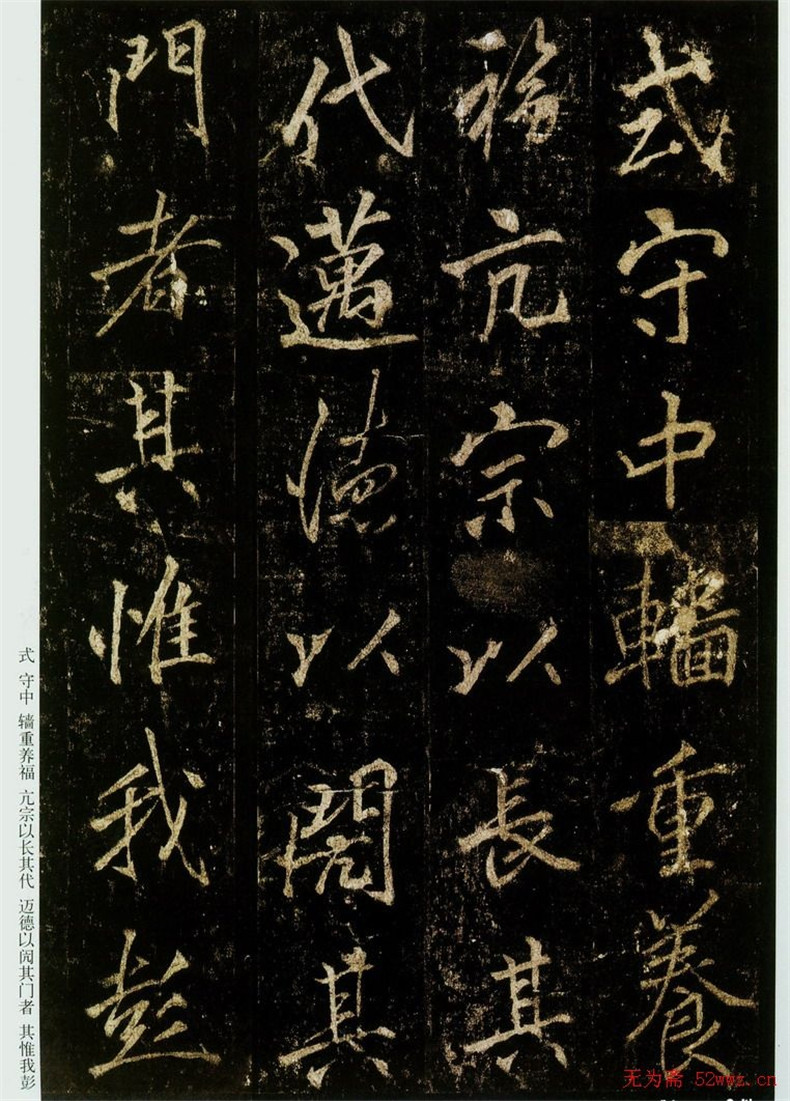 式守中轖重養
福亢宗以長其
代邁德以閱其
門者其惟我彭
式 守中 轖重养福 亢宗以长其代 迈德以阅其门者 其惟我彭
无为斋 52wwz.cn